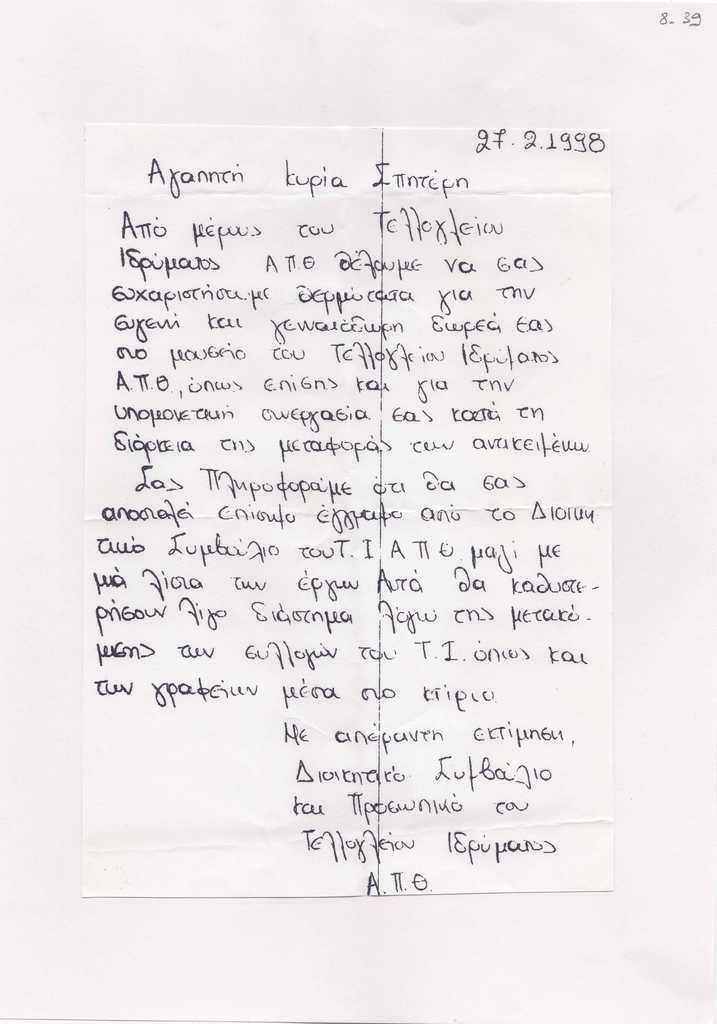 8-39
27.2.1998
Αγαπητή κυρία Σπητέρη
Από μέρους του Τελλογλείου
Ιδρύματος ΑΠΘ θέλουμε να σας
ευχαριστήσουμε θερμότατα για την
ευγενή και γενναιόδωρη δωρεά σας
στο μουσείο του Τελλογλείου Ιδρύματος
Α.Π.Θ., όπως επίσης και για την
υπομονετική συνεργασία σας κατά τη
διάρκεια της μεταφοράς των αντικειμένων
Σας Πληροφορούμε ότι θα σας
αποσταλεί επίσημο έγγραφο από το Διοικη
τικό Συμβούλιο του Τ.Ι ΑΠΘ. μαζί με
μιά λίστα των έργων Αυτά θα καθυστε-
ρήσουν λίγο διάστημα λόγω της μετακό-
μισης των συλλογών του Τ.Ι. όπως και
των γραφείων μέσα στο κτίριο.
Με απέραντη εκτίμηση,
Διοικητικό Συμβούλιο
και Προσωπικό του
Τελλογλείου Ιδρύματος
Α.Π.Θ.